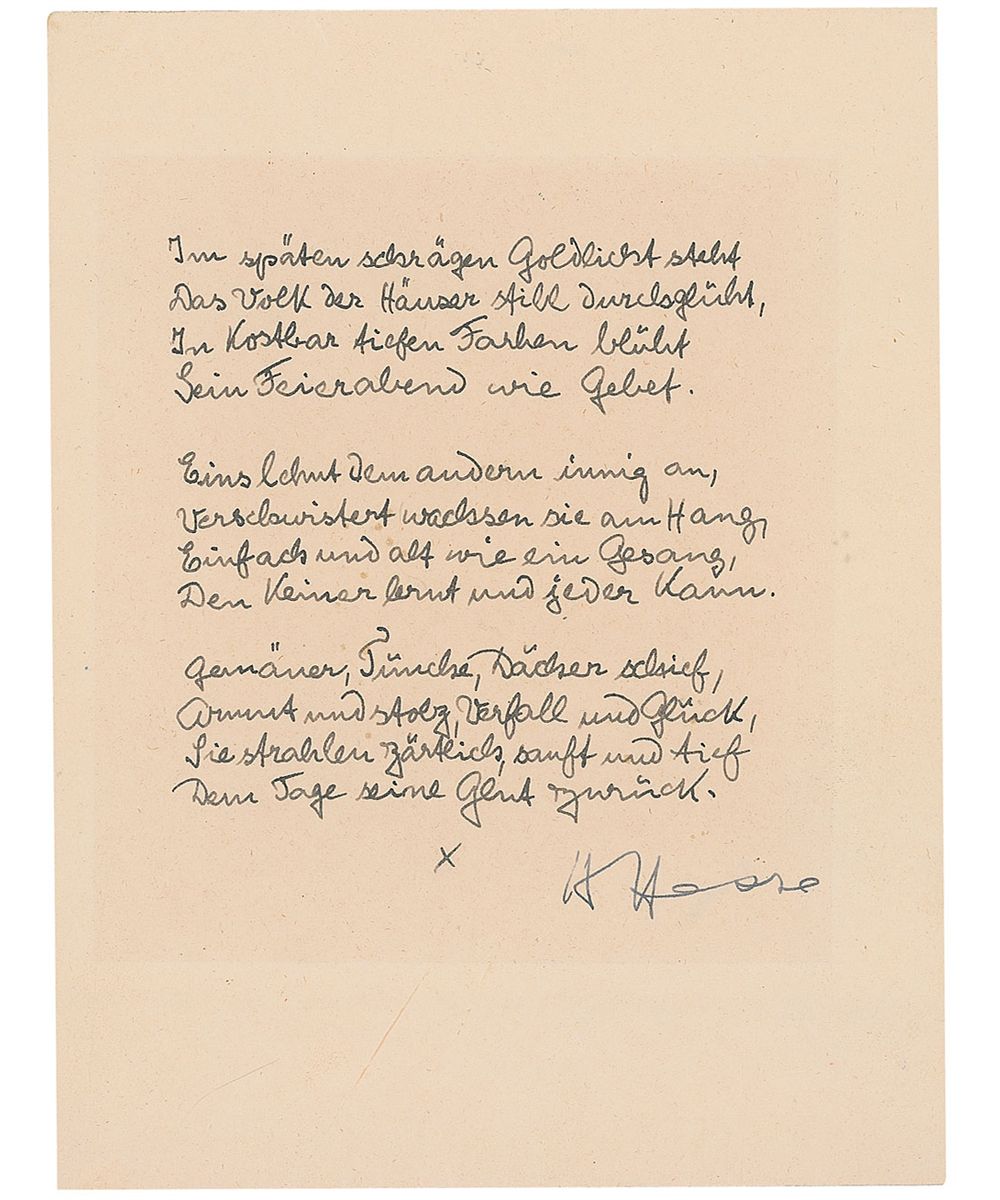 Im späten schrägen Goldlicht steht
Das Volk der Häuser still durchglüht,
In kostbar tiefen Farben blüht
Sein Feierabend wie Gebet.
Eins lehnt dem andern innig an,
Verschwistert wachsen sie am Hang,
Einfach und alt wie ein Gesang,
Den Keiner lernt und jeder kann.
Gemäuer, Tünche, Dächer schief,
Armut und Stolz, Verfall und Glück,
Sie strahlen zärtlich, sanft und tief
Dem Tage seine Glut zurück.
x
H Hesse